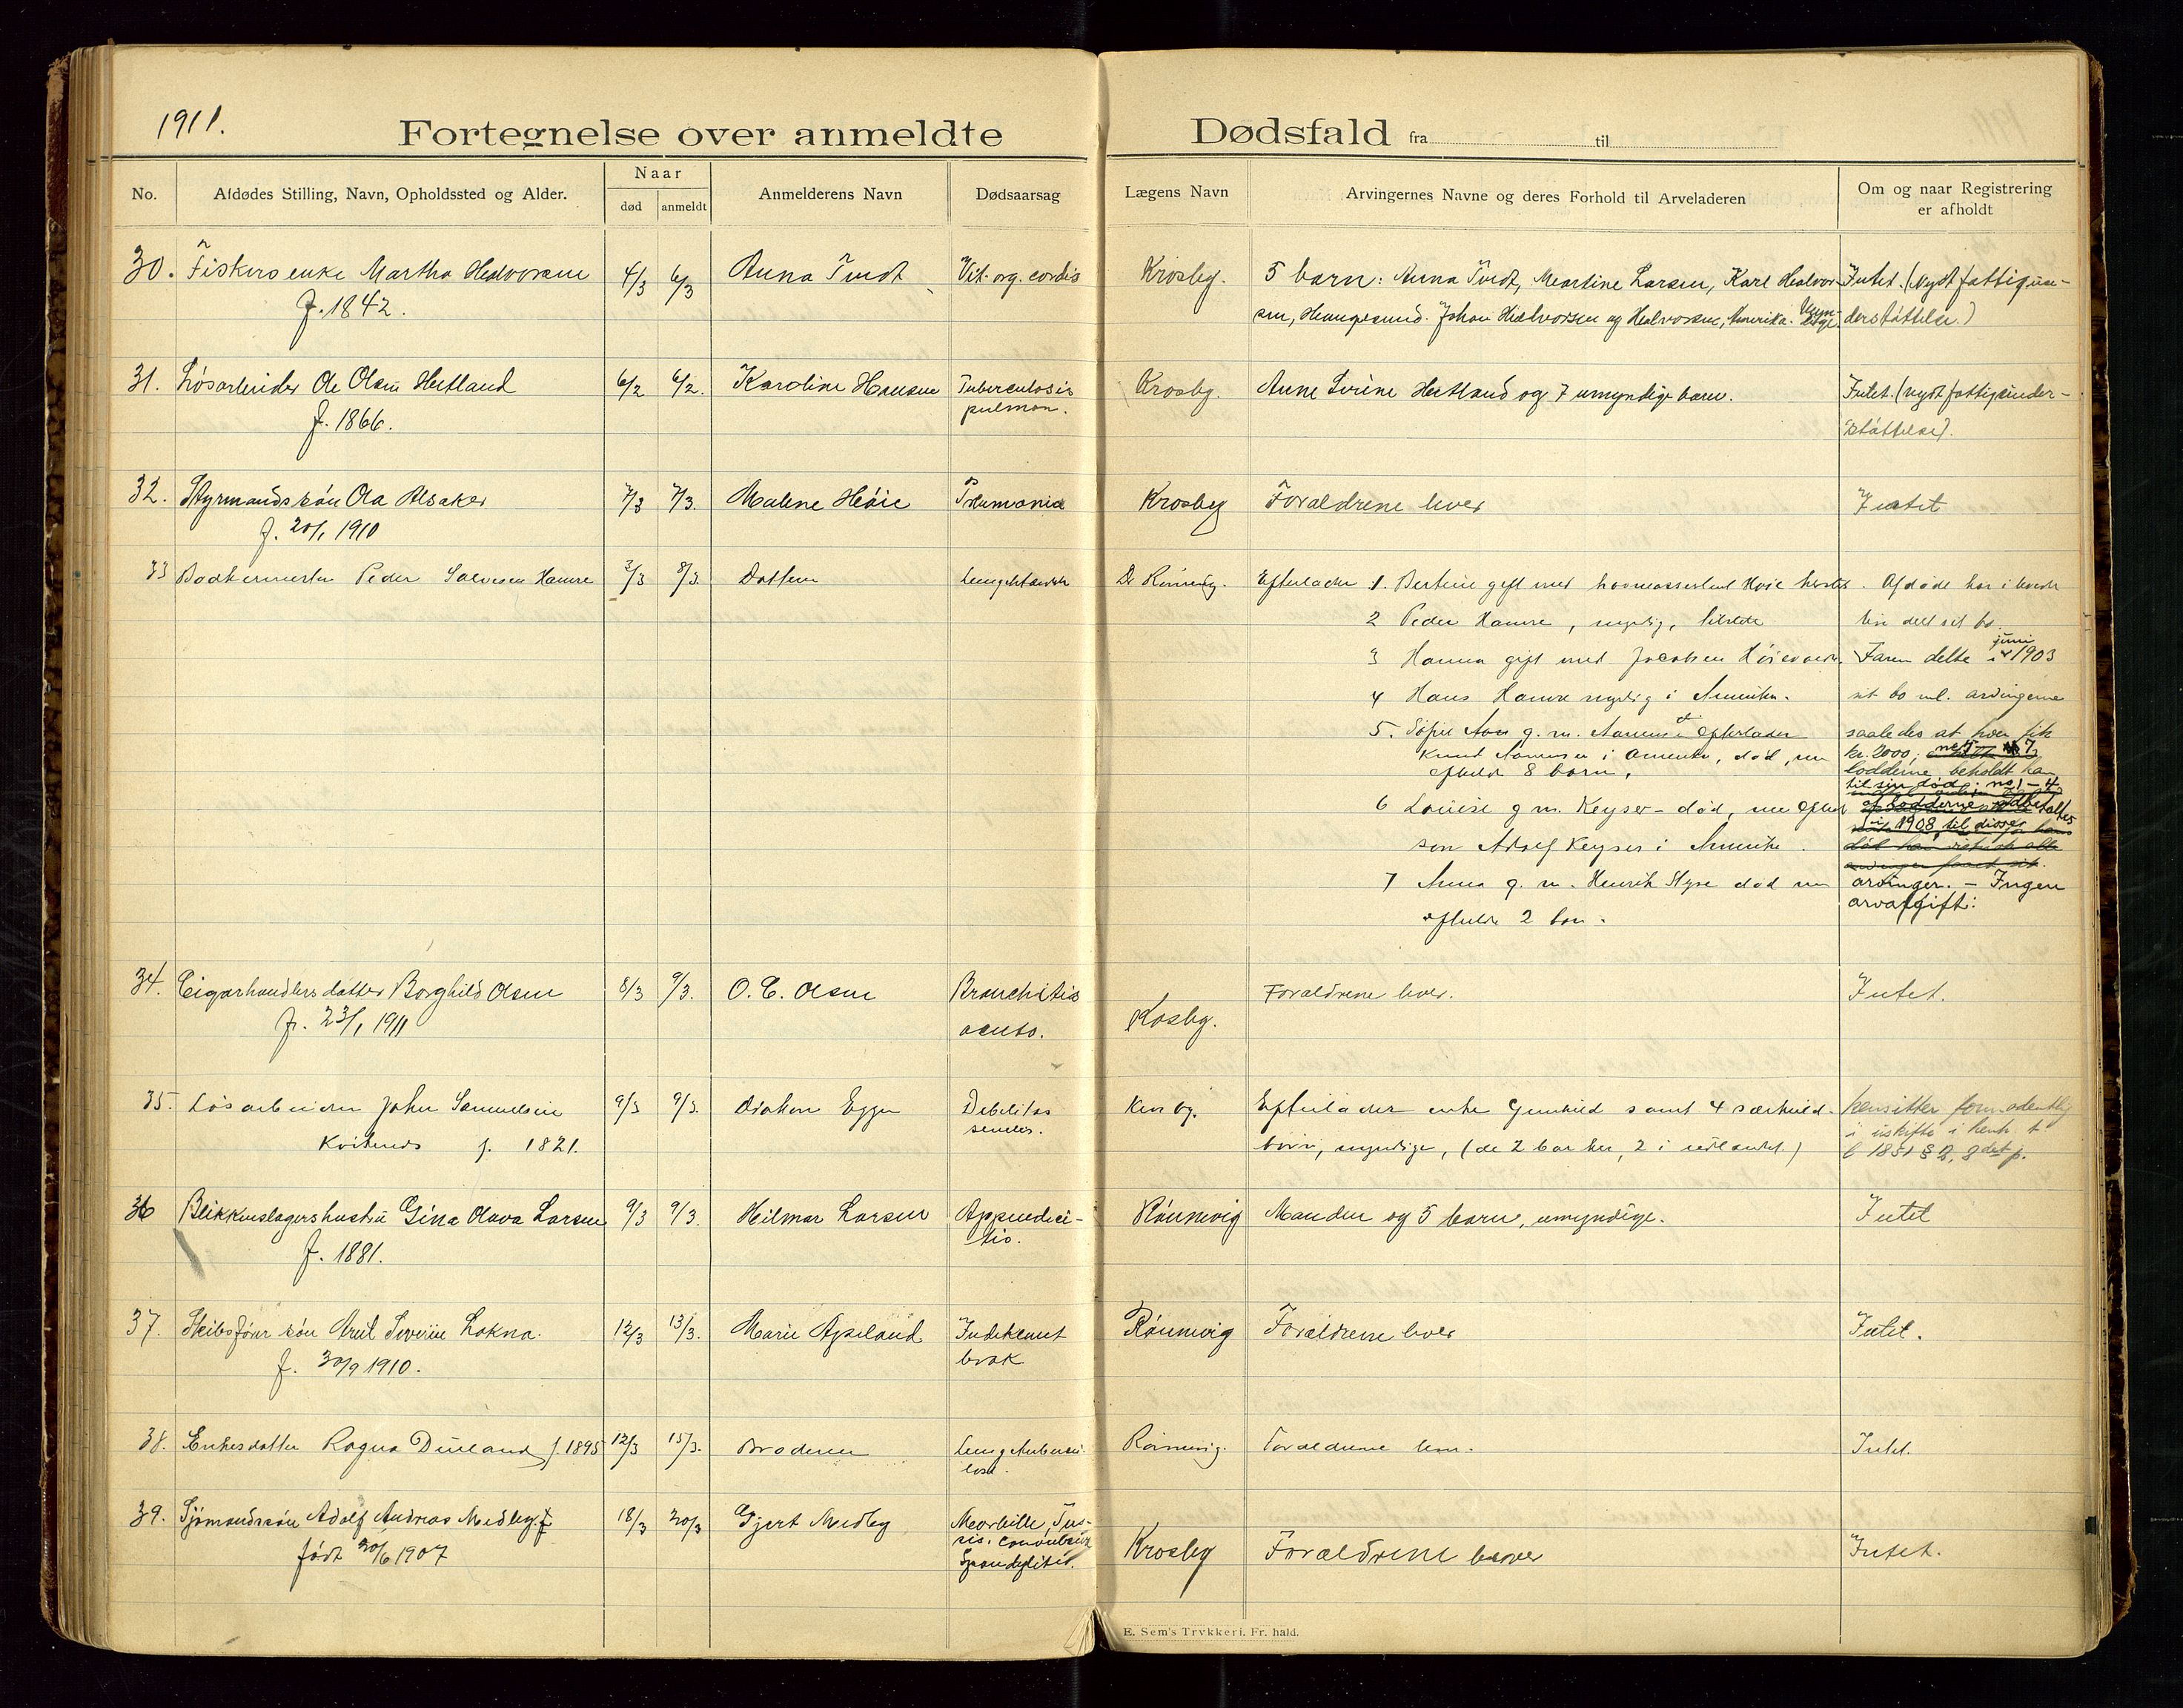 1911.
Fortegnelse over anmeldte Dødsfald fra til
No. Afdødes Stilling, Navn, Opholdssted og Alder. Naar død anmeldt Anmelderens Navn Dødsaarsag Lægens Navn Arvingernes Navne og deres Forhold til Arveladeren Om og naar Registrering er afholdt
30. Fiskers enke Martha Halvorsen 4/3 6/3 Anna Tvedt Vit. org. cordis Krosby. 5 barn: Anna Tvedt, Martine Larsen, Karl Halvor- Intet. (Nydt fattigun-
f. 1842. sen, Haugesund. Johan Halvorsen og Halvorsen, Amerika. derstøttelse.)
31. Løsarbeider Ole Olsen Hetland 6/2 6/2. Karoline Hansen Tuberculosis Krosby. Anne Serine Hetland og 7 umyndige barn. Intet. (nydt fattigunder-
f. 1866. pulmon. støttelse).
32. Styrmandssøn Ola Alsaker 7/3 7/3. Malene Høie Pneumonia Krosby Forældrene lever Intet
f. 20/1 1910
33 Peder Salvesen Hamre 3/3 8/3. Datteren Efterlader 1. Bertine gift med Høie Afdøde har i levende
2 Peder Hamre, myndig, tilstede live delt sit bo.
3 Hanna gift med Jacobsen Faren delte i juni 1903
4 Hans Hamre myndig i Amerika. sit bo ml. arvingerne
5. g. m. efterlader saaledes at hver fik
Knud i Amerika, død, kr. 2000,
8 barn, lodderne beholdt han
til sin død. no 1-4
6 Louise g m. Keyser - død, af lodderne udbetaltes
i 1908 til disse
søn Adolf Keyser i Amerika.
7 Anna g. m. Henrik død arvinger. - Ingen
2 barn. arvafgift.
34. Cigarhandlers datter Borghild Olsen 8/3 9/3. O. C. Olsen Bronchitis Forældrene lever. Intet.
f. 23/1 1911 acuta. Krosby.
35. Løsarbeider John Samuelsen 9/3 9/3. diakon Egge Debilitas Efterlader enke Gunhild samt 4 særkuld-
f. 1821. seniles. børn, myndige, (de 2 bor her, 2 i udlandet.) l 1851 §
36 Blikkenslagers hustru Gina Olava Larsen 9/3 9/3. Hilmar Larsen Appendici- Rønnevig Manden og 5 barn, umyndige. Intet
f. 1881. tis.
37. Skibsfører søn Arnt Severin Lokna. 12/3 13/3. Marie Apeland Indeklemt Rønnevig Forældrene lever Intet.
f. 30/9 1910. brok
38. Enkes datter Ragna f. 1895 12/3 15/3. Broderen Lungetuberku- Rønnevig. Forældrene Intet.
lose.
39. Sjømandssøn Adolf Andreas Medby. 18/3 20/3 Gjert Medby Morbille, Tus-
født 20/6 1907 sis. convulsiva Krosby Forældrene lever Intet.
Spondylitis.
E. Sem's Trykkeri. Fr.hald.